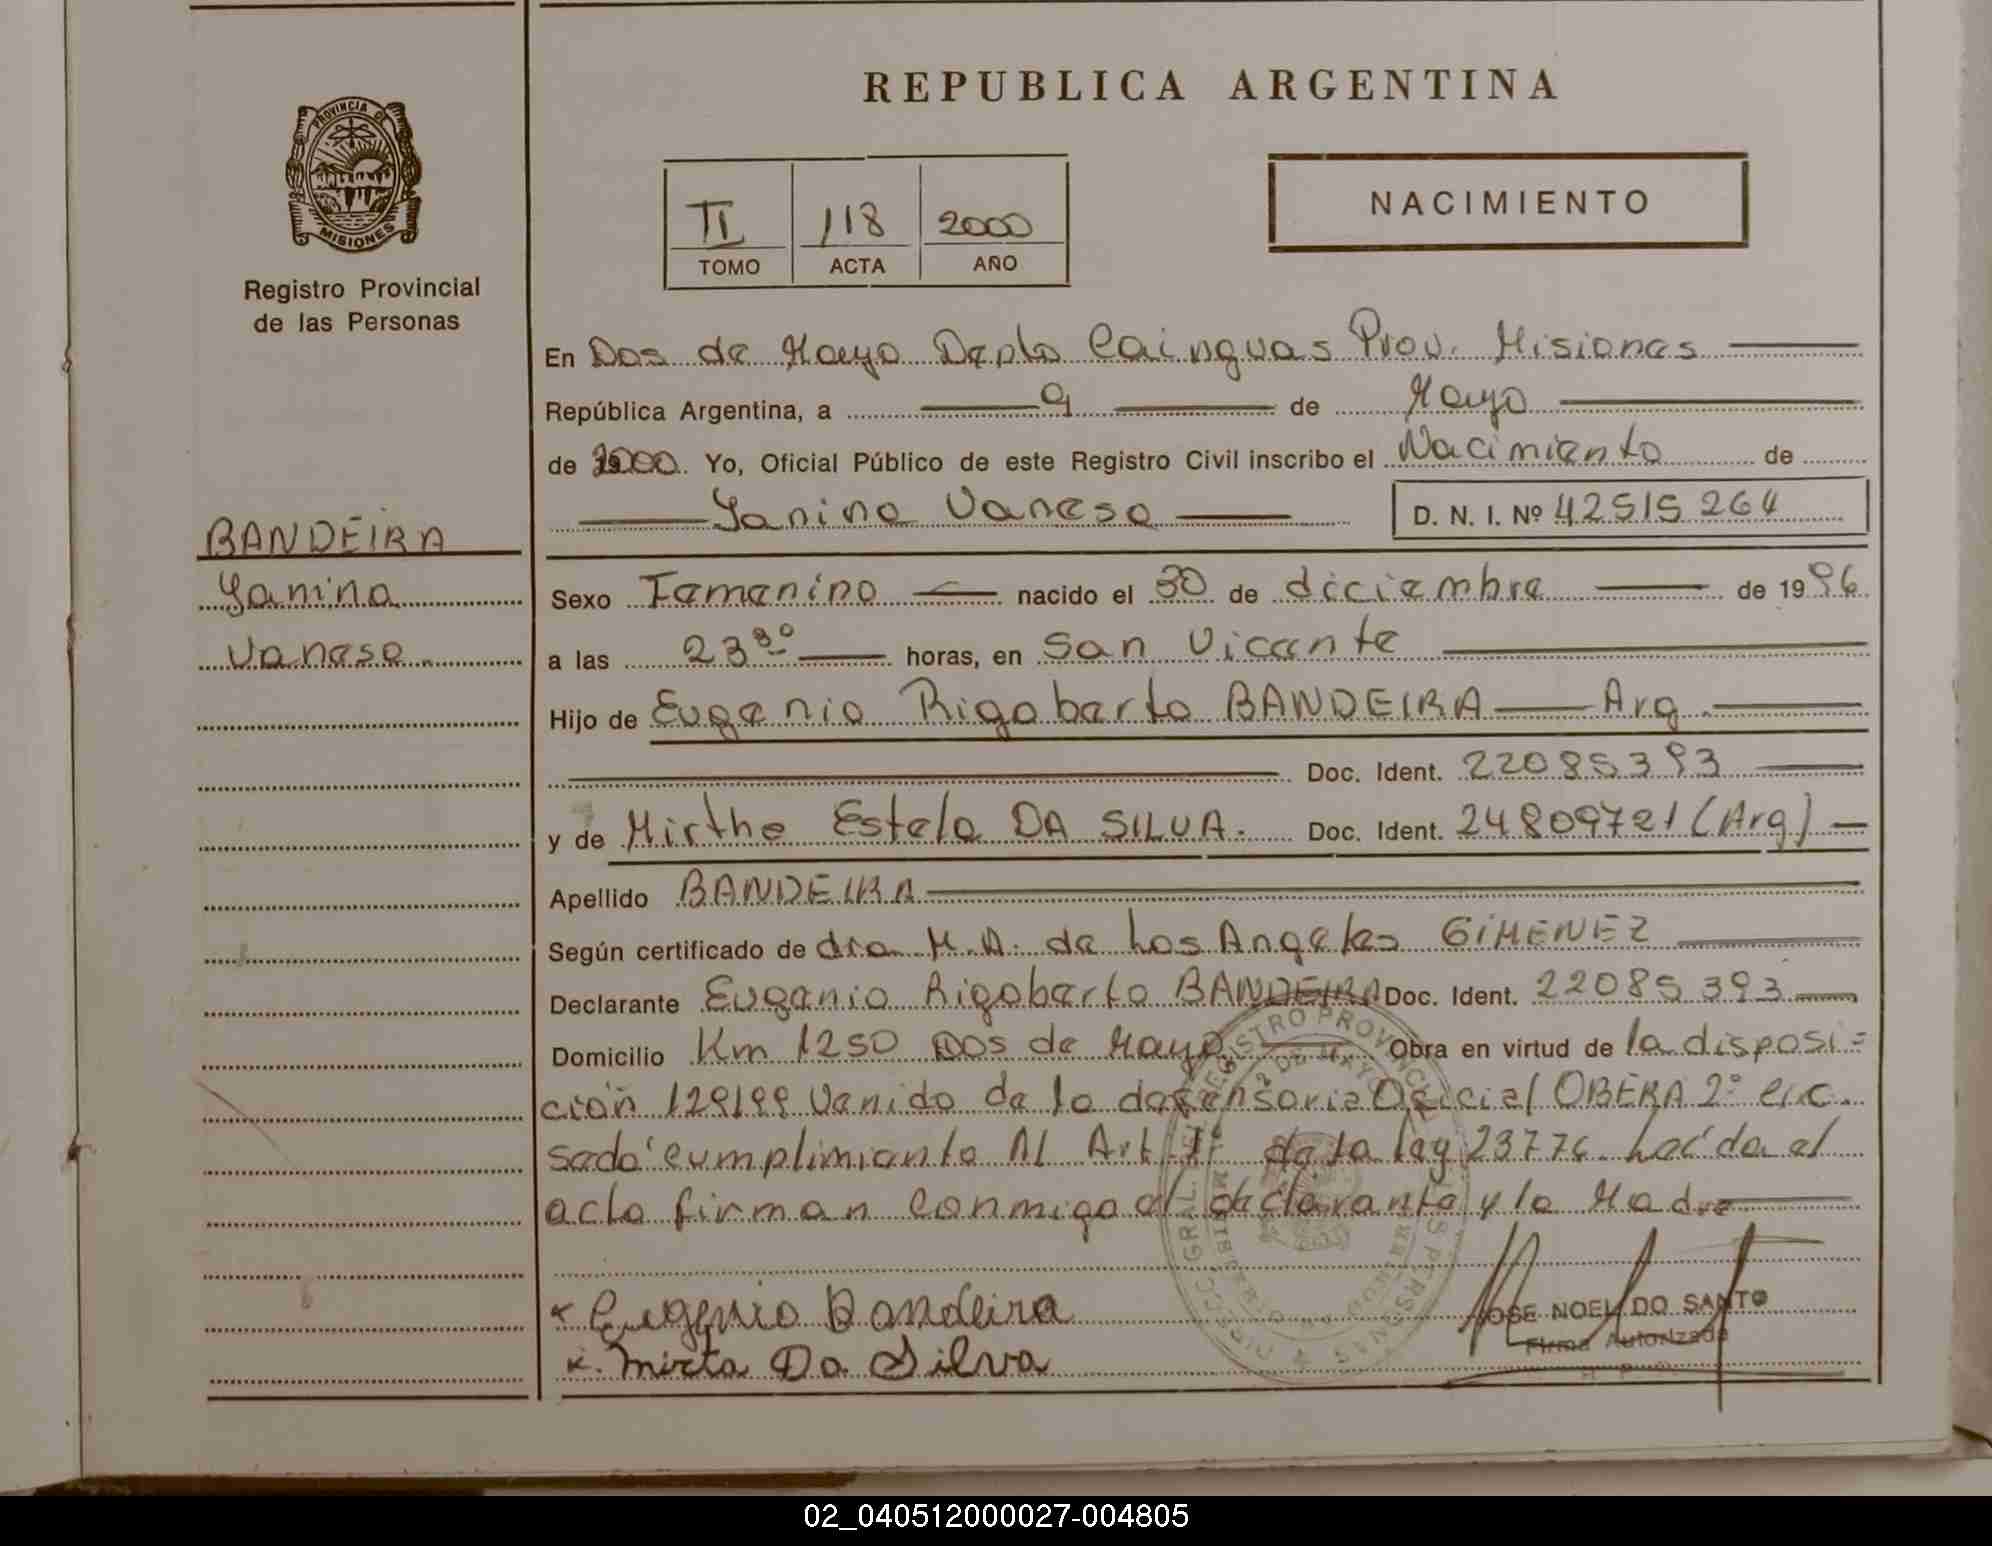 REPUBLICA ARGENTINA
PROVINCIA DE
MISIONES
Registro Provincial
de las Personas
TI 118 2000
TOMO ACTA AÑO
NACIMIENTO
En Dos de Mayo Depto Cainguas Prov. Misiones
República Argentina, a 9 de Mayo
de 2000. Yo, Oficial Público de este Registro Civil inscribo el Nacimiento de
Yanina Vanesa D. N. I. Nº 42515264
BANDEIRA
Yanina
Vanesa
Sexo Femenino nacido el 30 de diciembre de 1996
a las 23³⁰ horas, en San Vicente
Hijo de Eugenio Rigoberto BANDEIRA Arg.
Doc. Ident. 22085393
y de Mirtha Estela DA SILVA. Doc. Ident. 24809721 (Arg)
Apellido BANDEIRA
Según certificado de dra M.A. de Los Angeles GIMENEZ
Declarante Eugenio Rigoberto BANDEIRA Doc. Ident. 22085393
Domicilio Km 1250 Dos de Mayo Obra en virtud de la disposi=
ción 129/99 Venido de la defensoria Oficial OBERA 2° circ.
cumplimiento Al Art 1° de la ley 23776. el
acto firman conmigo el declarante y la Madre
x Eugenio Bandeira
x. Mirta Da Silva
JOSE NOEL DO SANTO
Firma Autorizada
02_040512000027-004805